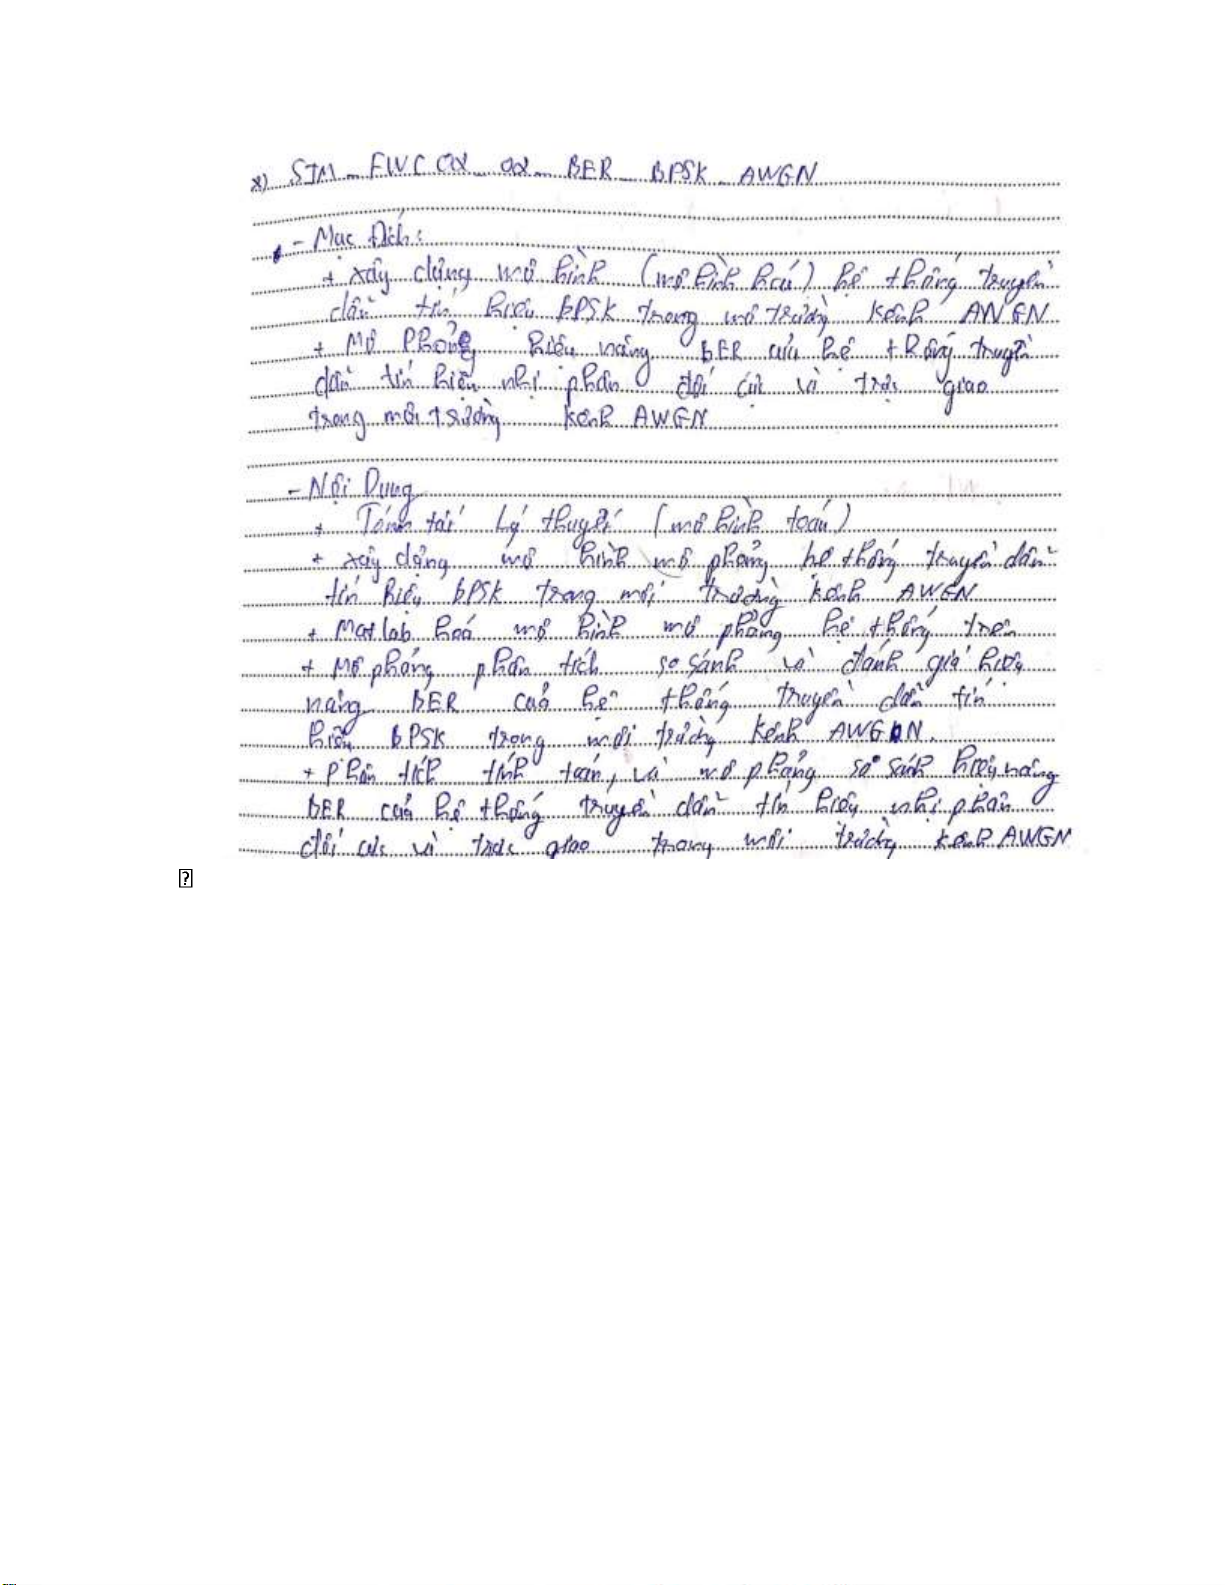 *) SIM_FWC 02_02_BER_BPSK_AWGN
- Mục Đích:
+ xây dựng mô hình (mô hình hoá) hệ thống truyền
dẫn tín hiệu BPSK trong mô trường kênh AWGN
+ Mô Phỏng hiệu năng BER của hệ thống truyền
dẫn tín hiệu nhị phân đối cực và trực giao
trong môi trường kênh AWGN
- Nội Dung
+ Tóm tắt Lý thuyết (mô hình toán)
+ xây dựng mô hình mô phỏng hệ thống truyền dẫn
tín hiệu BPSK trong môi trường kênh AWGN
+ Matlab hoá mô hình mô phỏng hệ thống trên
+ Mô phỏng phân tích so sánh và đánh giá hiệu
năng BER của hệ thống truyền dẫn tín
hiệu BPSK trong môi trường kênh AWGN.
+ Phân tích tính toán, và mô phỏng so sánh hiệu năng
BER của hệ thống truyền dẫn tín hiệu nhị phân
đối cực và trực giao trong môi trường kênh AWGN